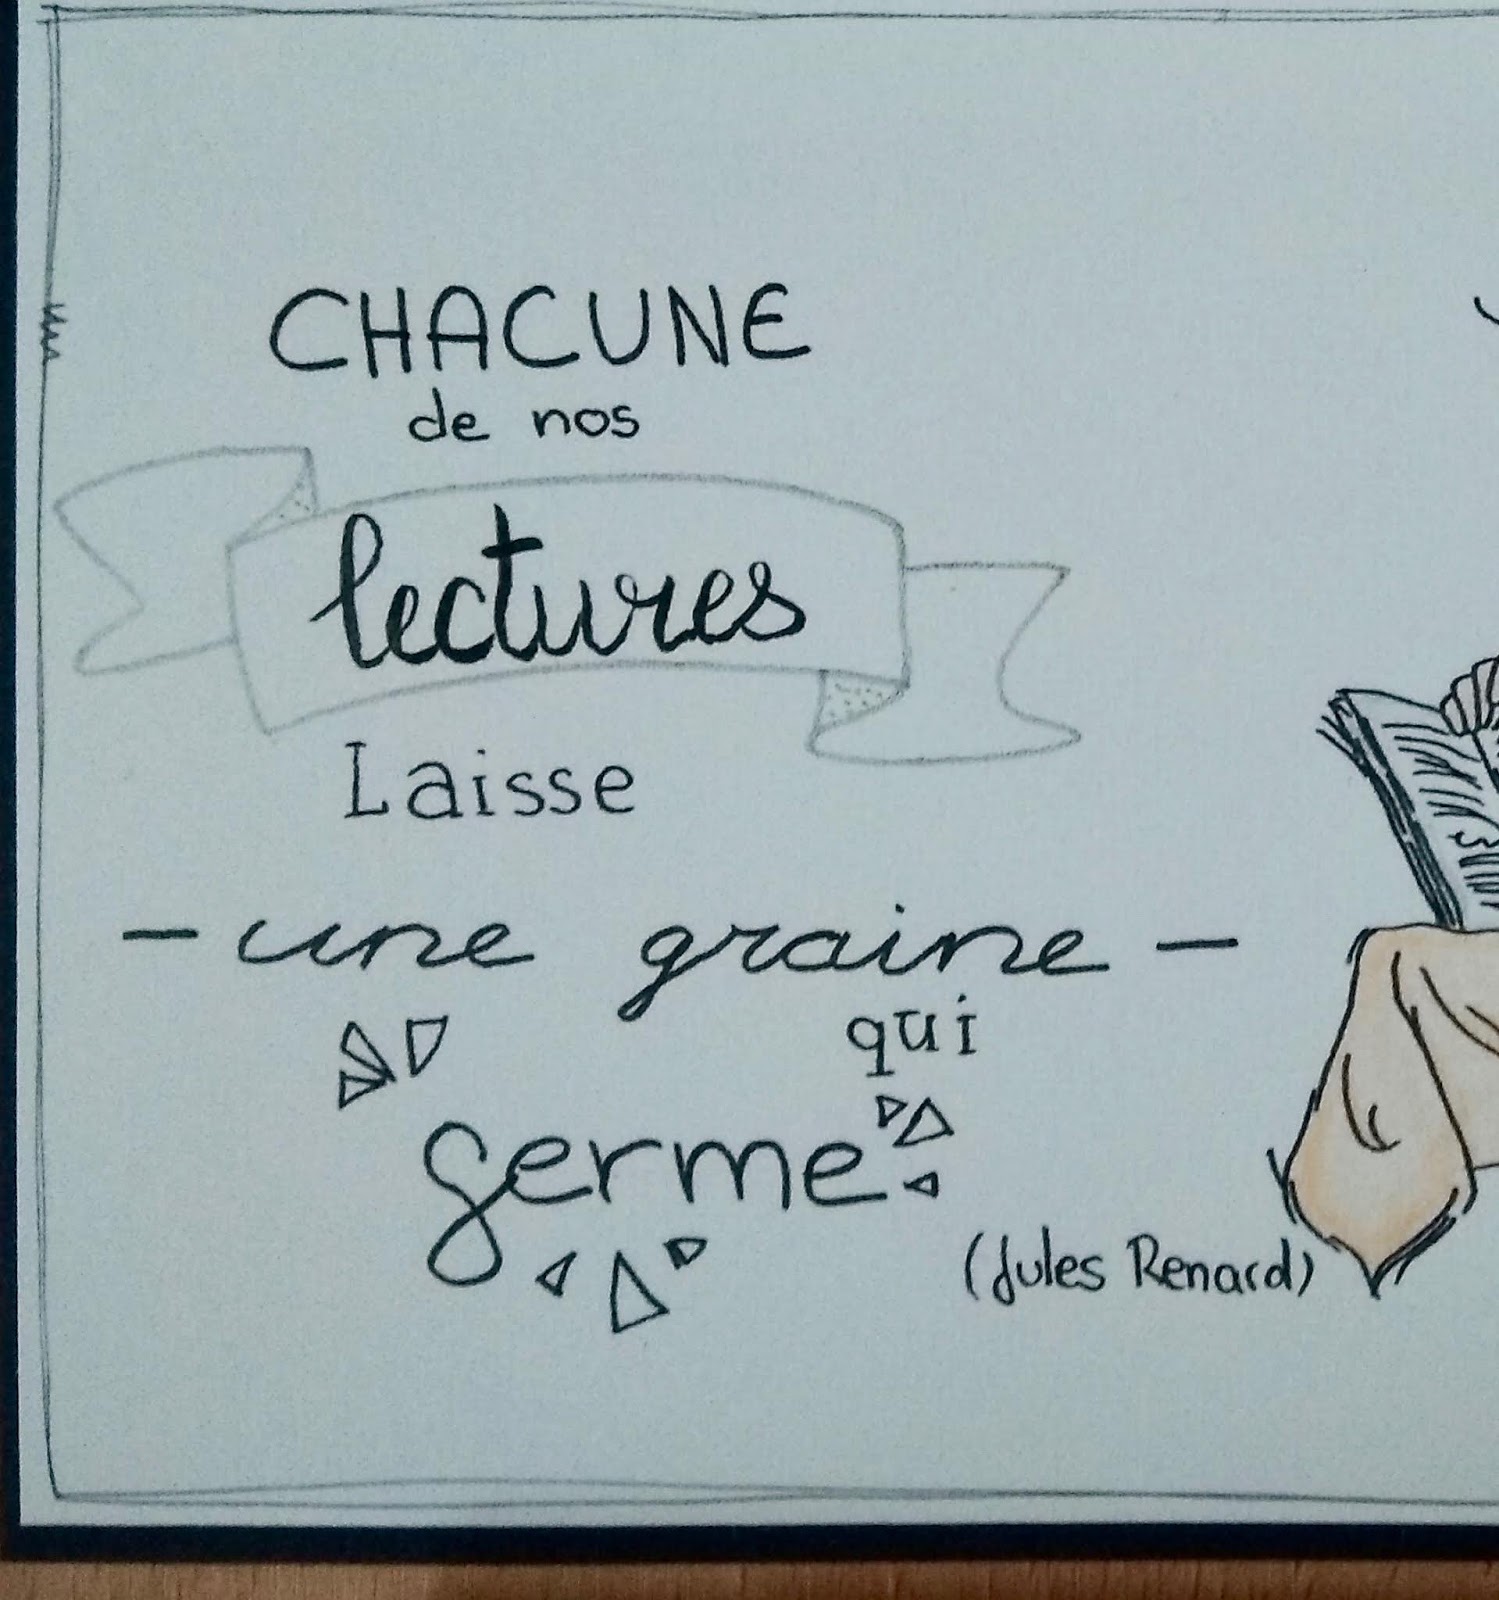 CHACUNE
de nos
lectures
Laisse
- une graine -
qui
germe
(Jules Renard)